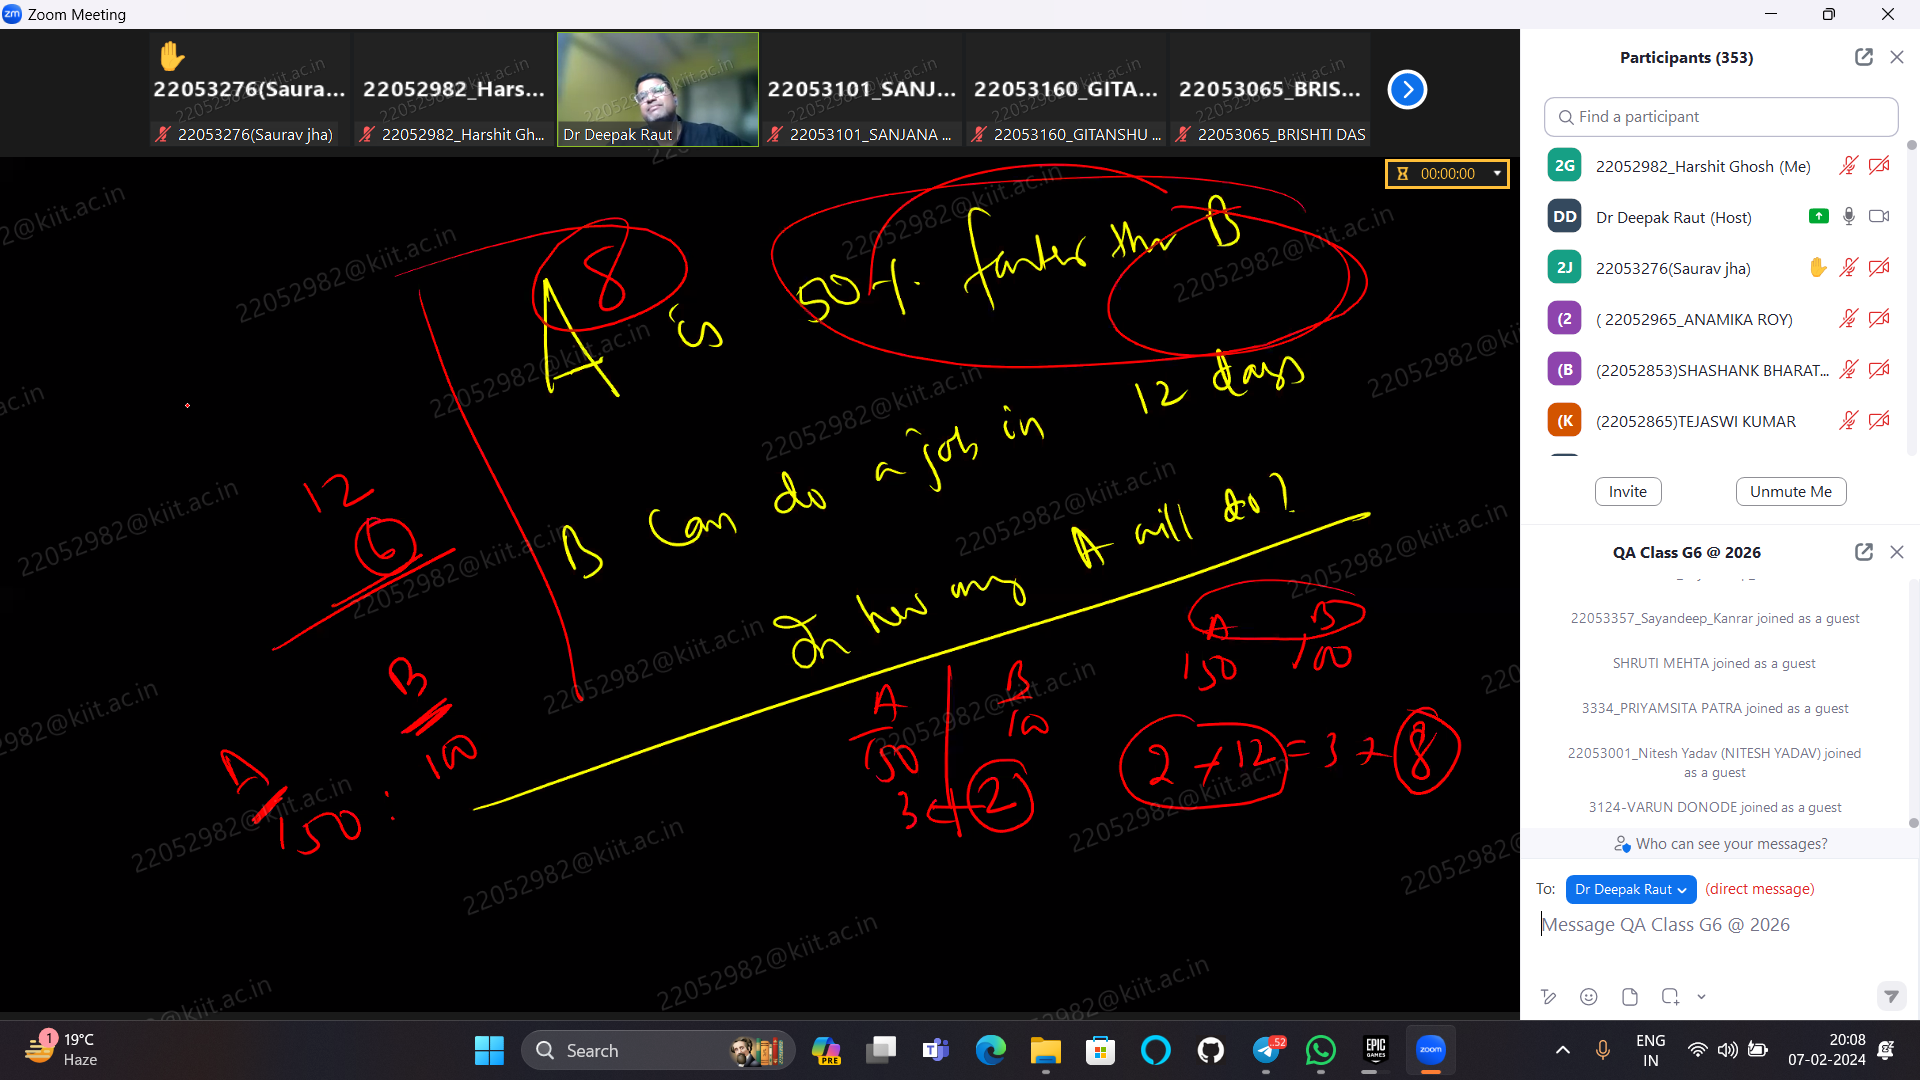 Zoom Meeting
22053276(Saura...
22052982_Hars...
22053101_SANJ...
22053160_GITA...
22053065_BRIS...
22053276(Saurav jha)
22052982_Harshit Gh...
Dr Deepak Raut
22053101_SANJANA ...
22053160_GITANSHU ...
22053065_BRISHTI DAS
00:00:00
8
A is 50% faster than B
B can do a job in 12 days
In how many A will do?
12
6
B
100
A
150 :
A
150
3
B
100
2
A B
150 100
2 × 12 = 3 × 8
22052982@kiit.ac.in
Participants (353)
Find a participant
2G 22052982_Harshit Ghosh (Me)
DD Dr Deepak Raut (Host)
2J 22053276(Saurav jha)
(2 ( 22052965_ANAMIKA ROY)
(B (22052853)SHASHANK BHARAT...
(K (22052865)TEJASWI KUMAR
Invite
Unmute Me
QA Class G6 @ 2026
22053357_Sayandeep_Kanrar joined as a guest
SHRUTI MEHTA joined as a guest
3334_PRIYAMSITA PATRA joined as a guest
22053001_Nitesh Yadav (NITESH YADAV) joined
as a guest
3124-VARUN DONODE joined as a guest
Who can see your messages?
To: Dr Deepak Raut (direct message)
Message QA Class G6 @ 2026
1
19°C
Haze
Search
PRE
.52
EPIC
GAMES
zoom
ENG
IN
20:08
07-02-2024